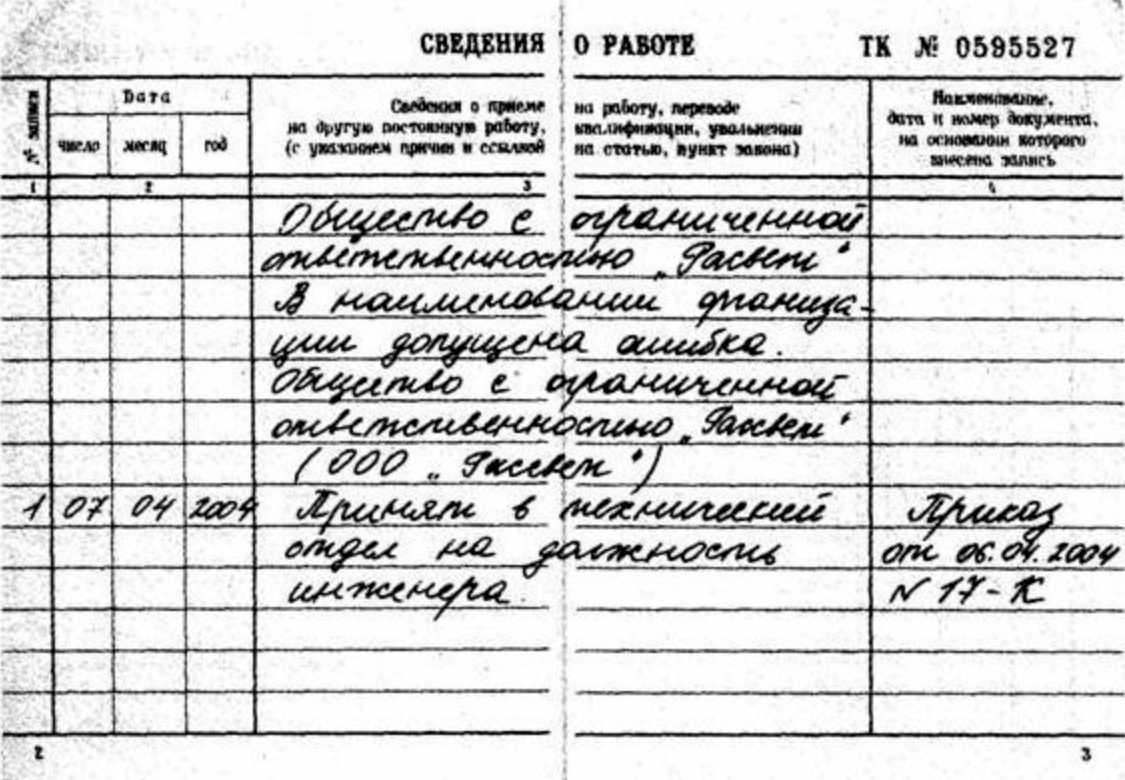 СВЕДЕНИЯ О РАБОТЕ ТК № 0595527
№ записи
Дата
число месяц год
Сведения о приеме на работу, переводе
на другую постоянную работу, квалификации, увольнении
(с указанием причин и ссылкой на статью, пункт закона)
Наименование,
дата и номер документа,
на основании которого
внесена запись
1 2 3 4
Общество с ограниченной
ответственностью „Расвет“
В наименовании организа-
ции допущена ошибка.
Общество с ограниченной
ответственностью „Рассвет“
(ООО „Рассвет“)
1 07 04 2004 Принят в технический Приказ
отдел на должность от 06.04.2004
инженера. N 17-К
2 3